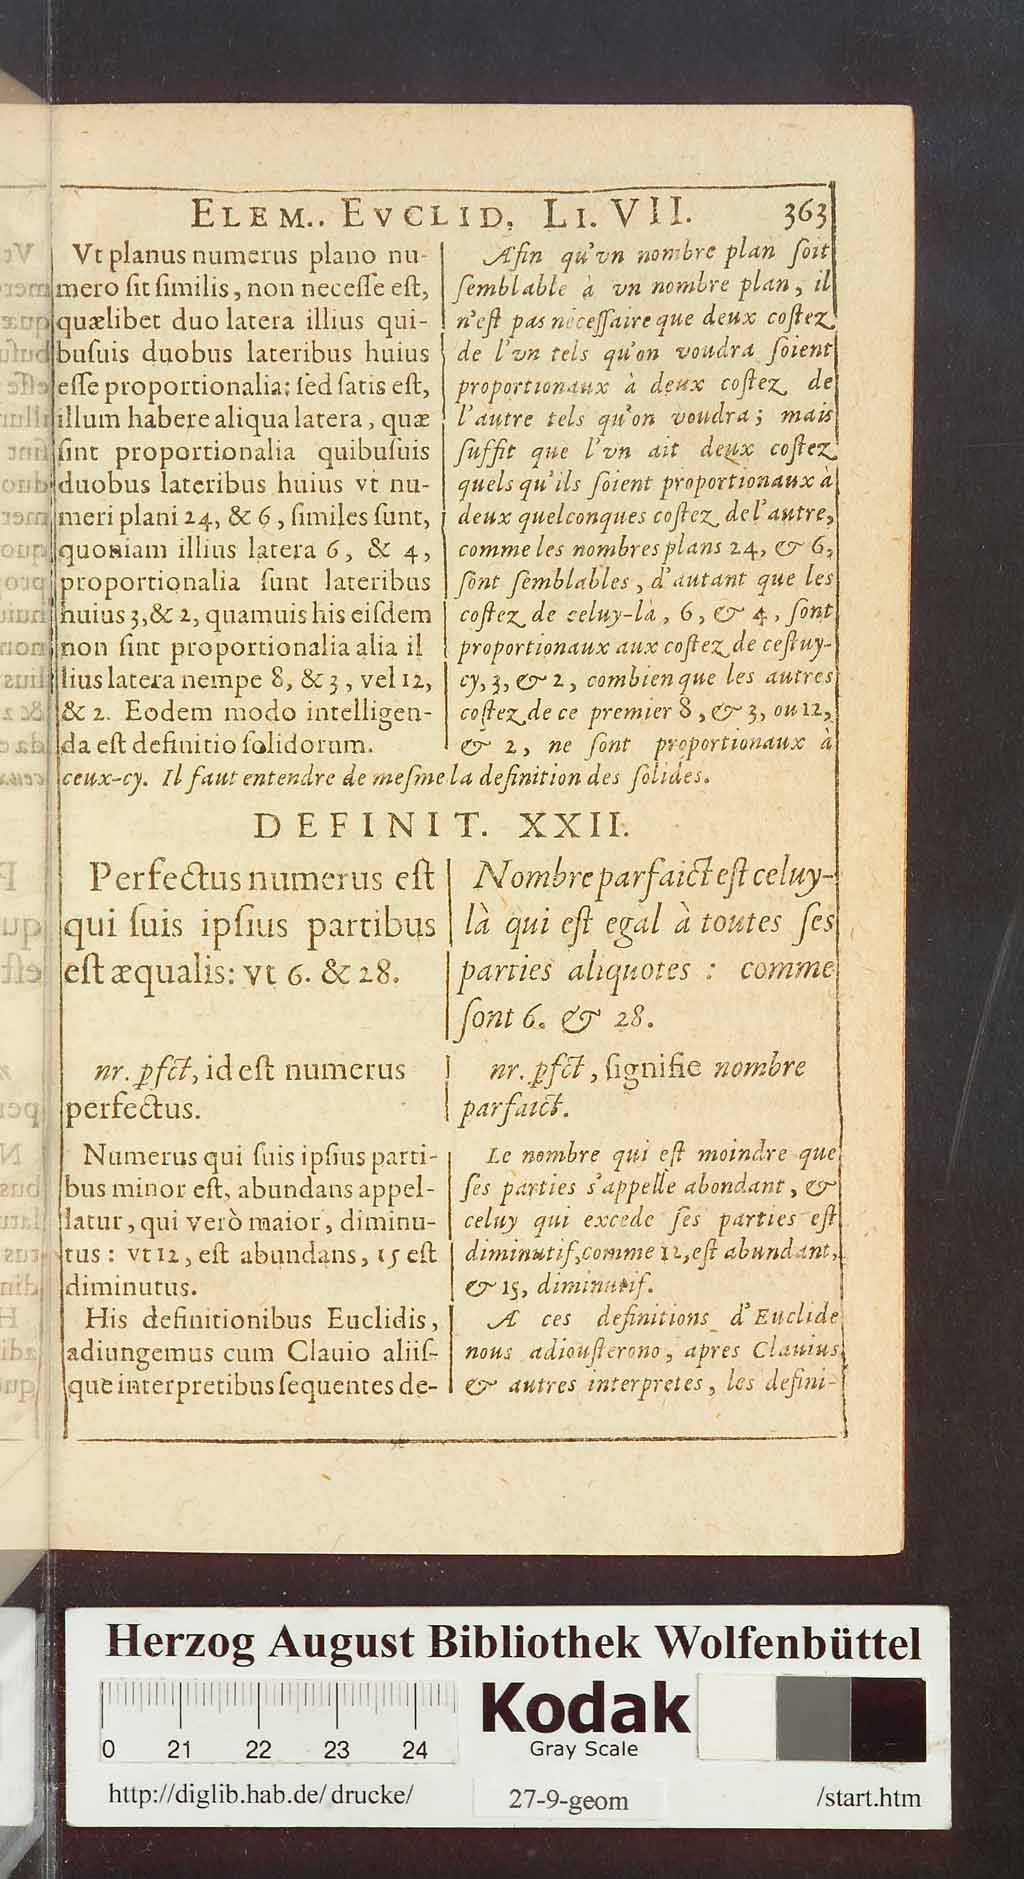 ELEM.. EVCLID. LI. VII. 363
Vt planus numerus plano nu-
mero sit similis, non necesse est,
quælibet duo latera illius qui-
busuis duobus lateribus huius
esse proportionalia: sed satis est,
illum habere aliqua latera, quæ
sint proportionalia quibusuis
duobus lateribus huius vt nu-
meri plani 24, & 6, similes sunt,
quoniam illius latera 6, & 4,
proportionalia sunt lateribus
huius 3, & 2, quamuis his eisdem
non sint proportionalia alia il
lius latera nempe 8, & 3, vel 12,
& 2. Eodem modo intelligen-
da est definitio solidorum.
Afin qu'vn nombre plan soit
semblable à vn nombre plan, il
n'est pas necessaire que deux costez
de l'vn tels qu'on voudra soient
proportionaux à deux costez de
l'autre tels qu'on voudra; mais
suffit que l'vn ait deux costez
quels qu'ils soient proportionaux à
deux quelconques costez de l'autre,
comme les nombres plans 24, & 6,
sont semblables, d'autant que les
costez de celuy-là, 6, & 4, sont
proportionaux aux costez de cestuy-
cy, 3, & 2, combien que les autres
costez de ce premier 8, & 3, ou 12,
& 2, ne sont proportionaux à
ceux-cy. Il faut entendre de mesme la definition des solides.
DEFINIT. XXII.
Perfectus numerus est
qui suis ipsius partibus
est æqualis: vt 6. & 28.
Nombre parfaict est celuy-
là qui est egal à toutes ses
parties aliquotes : comme
sont 6. & 28.
nr. pfct, id est numerus
perfectus.
nr. pfct, signifie nombre
parfaict.
Numerus qui suis ipsius parti-
bus minor est, abundans appel-
latur, qui verò maior, diminu-
tus : vt 12, est abundans, 15 est
diminutus.
His definitionibus Euclidis,
adiungemus cum Clauio aliis-
que interpretibus sequentes de-
Le nombre qui est moindre que
ses parties s'appelle abondant, &
celuy qui excede ses parties est
diminutif, comme 12, est abundant,
& 15, diminutif.
A ces definitions d'Euclide
nous adiousterono, apres Clauius
& autres interpretes, les defini-
Herzog August Bibliothek Wolfenbüttel
0 21 22 23 24
Kodak
Gray Scale
http://diglib.hab.de/drucke/ 27-9-geom /start.htm